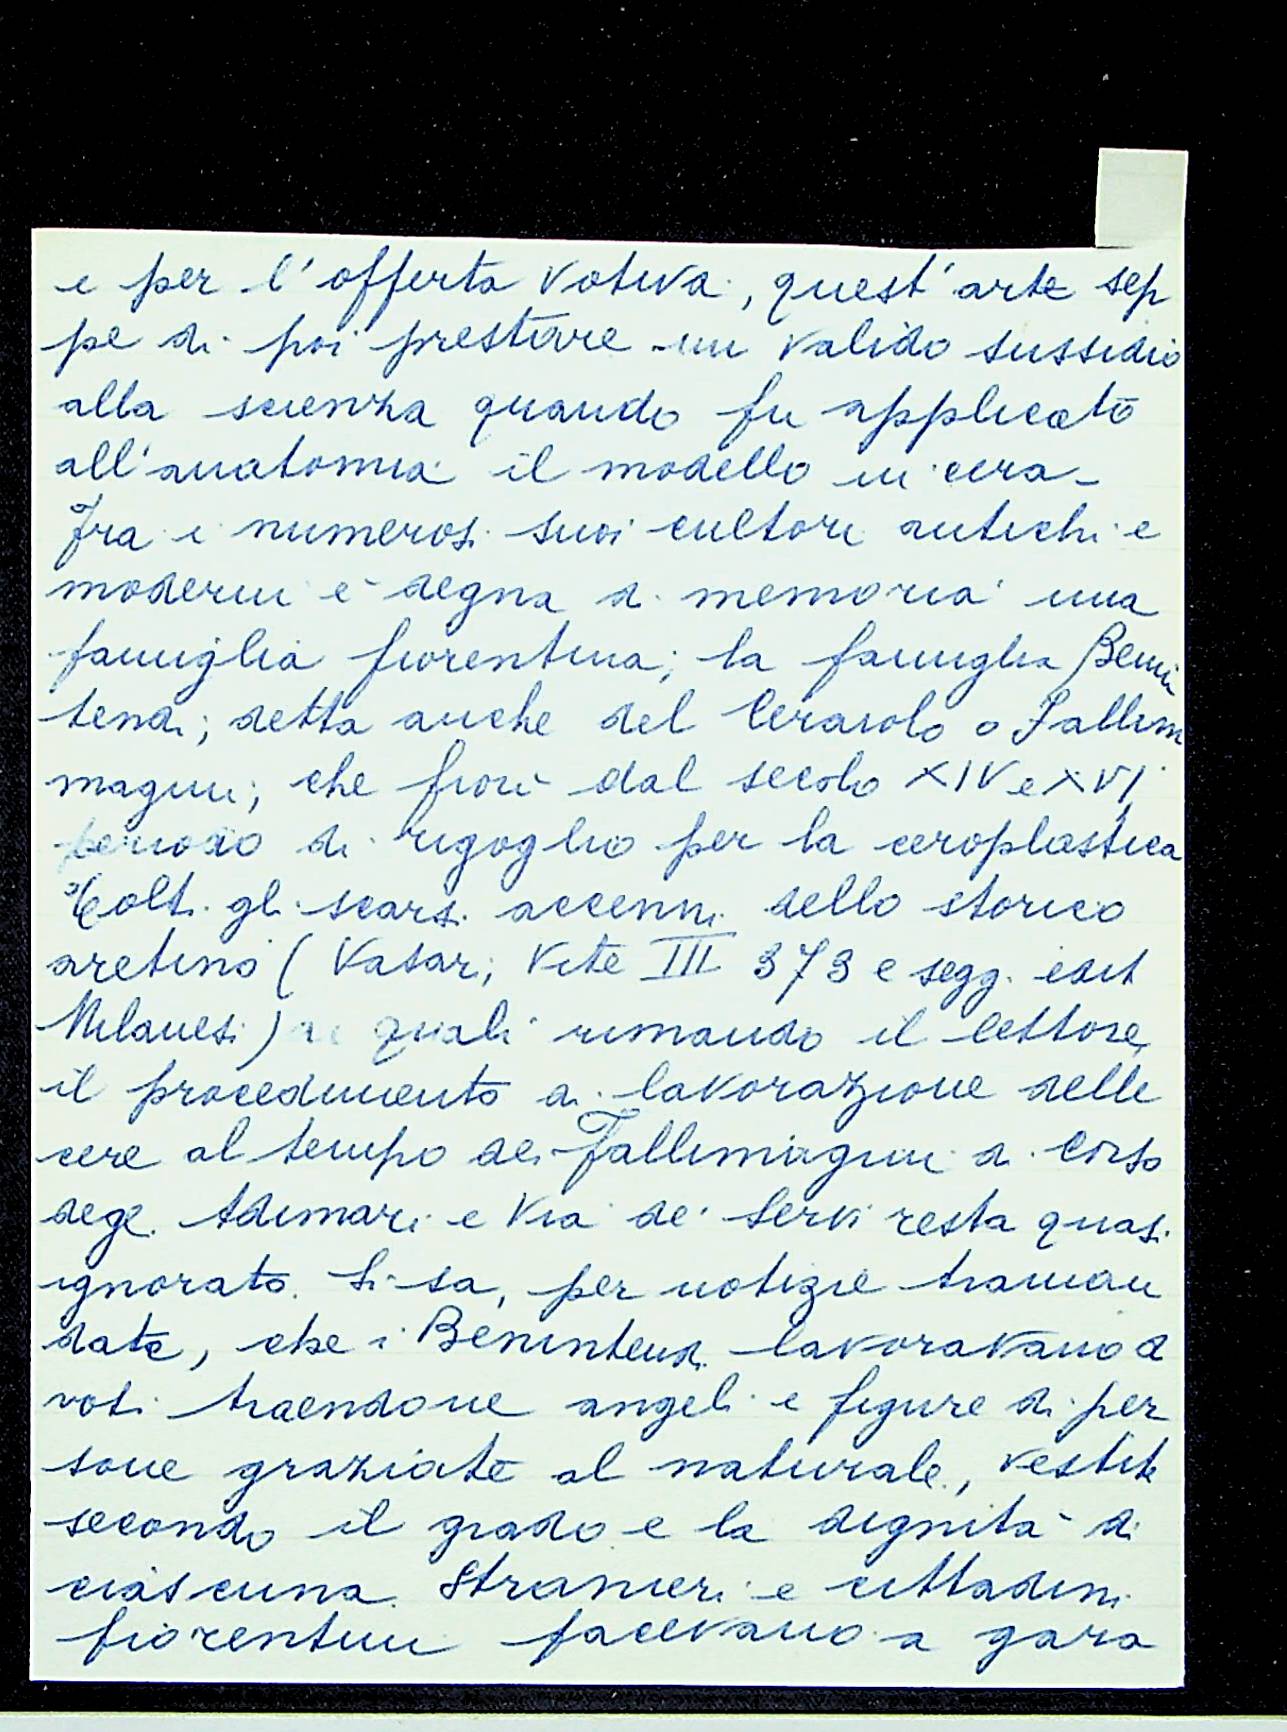 e per l'offerta votiva, quest'arte sep
pe di poi prestare un valido sussidio
alla scienza quando fu applicato
all'anatomia il modello in cera -
Fra i numerosi suoi cultori antichi e
moderni è degna di memoria una
famiglia fiorentina; la famiglia Benin
tendi; detta anche del Ceraiolo o Fallim
magini; che fiorì dal secolo XIV e XVI,
periodo di rigoglio per la ceroplastica
Tolti gli scarsi accenni dello storico
aretino (Vasari, Vite III 373 e segg. edit
Milanesi) ai quali rimando il lettore,
il procedimento di lavorazione delle
cere al tempo dei Fallimagini di Corso
degl. Adimari e Via de' Servi resta quasi
ignorato. Si sa, per notizie traman
date, che i Benintendi lavoravano a
voti traendone angeli e figure di per
sone graziate al naturale, vestite
secondo il grado e la dignità di
ciascuna. Stranieri e cittadini
fiorentini facevano a gara